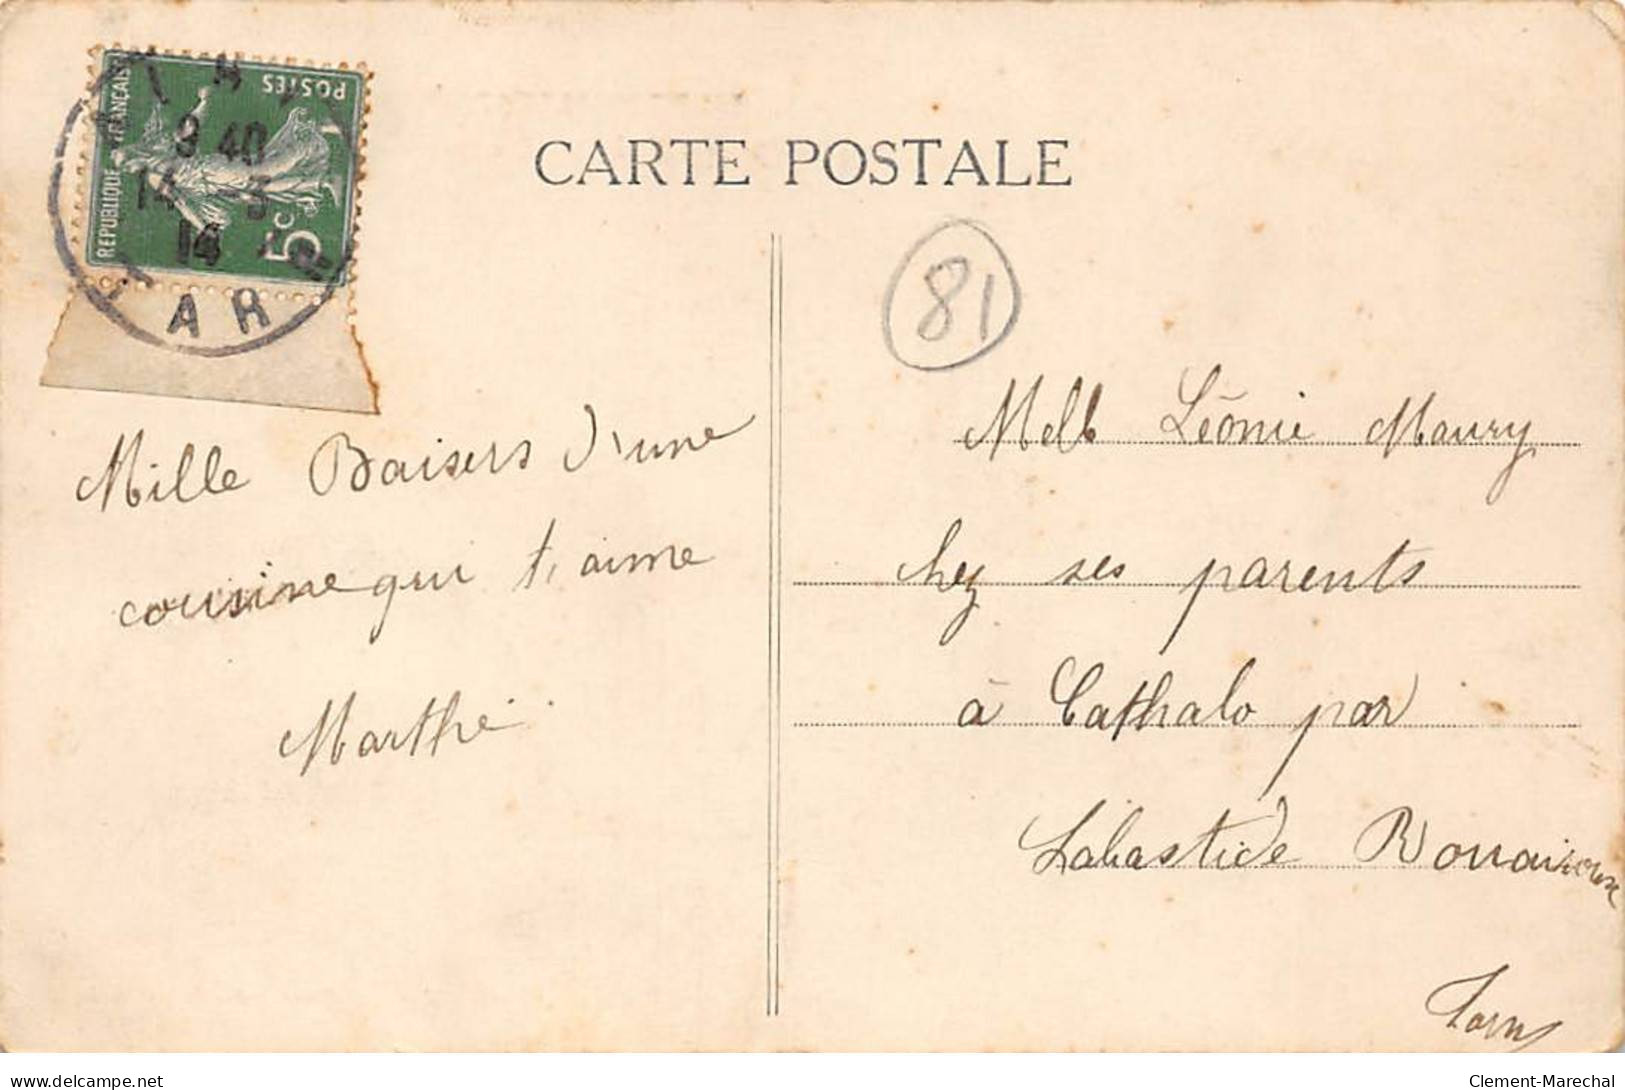 RÉPUBLIQUE FRANÇAISE
POSTES
5c
9 40
14 -3
14
TAR
CARTE POSTALE
81
Mille Baisers d'une
cousine qui t'aime
Marthe
Melle Léonie Maury
chez ses parents
à Cathalo par
Labastide Rouairoux
Tarn
delcampe.net
Clement-Marechal